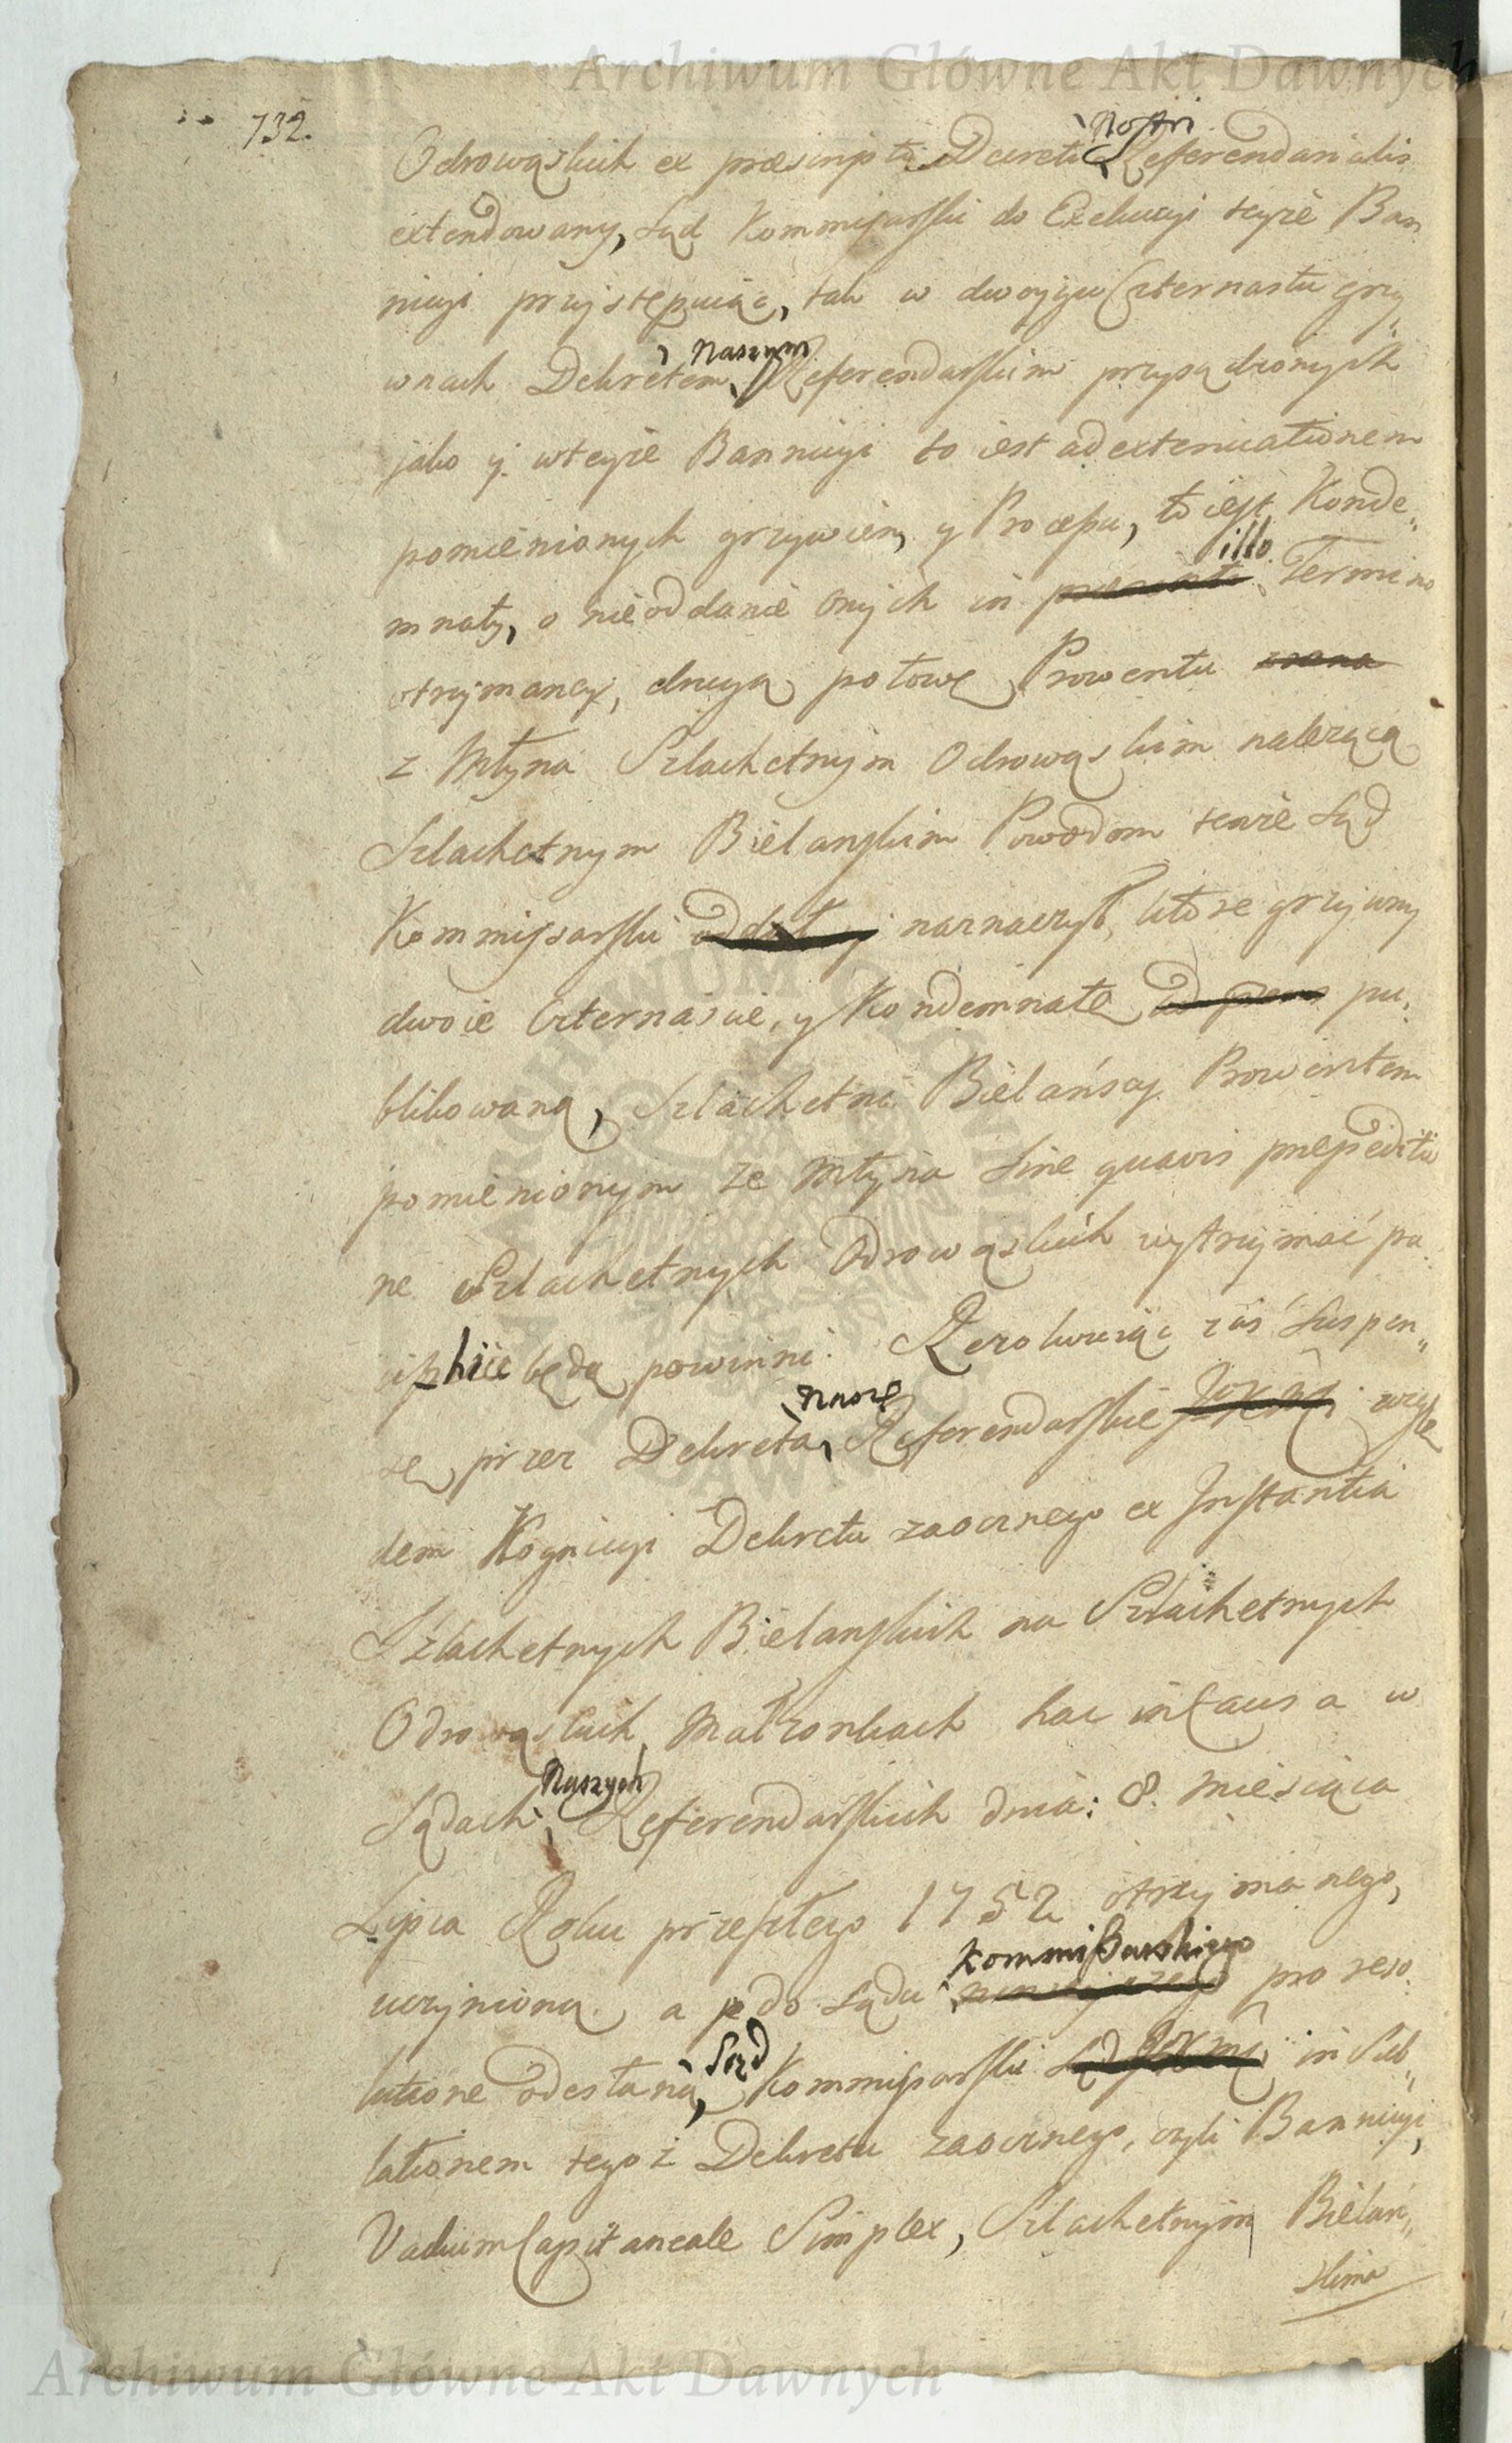 Archiwum Główne Akt Dawnych
732.
Nostri
Odrowąskich ex præscripto Decreti Referendarialis
extendowany, Sąd Kommissarski do Exekucyi teyże Ban
nicyi przystępuiąc, tak w dwoygu Czternastu grzy„
naszym
wnach Dekretem Referendarskim przysądzonych
jako y wteyże Bannicyi to iest ad extenuationem
pomienionych grzywien, y Processu, to iest Konde„
illo
mnaty, o nieoddanie onych in præsenti Termino
otrzymaney, drugą połowę Prowentu
z Młyna Szlachetnym Odrowąskim należącą
Szlachetnym Bielanskim Powodom tenże Sąd
Kommissarski oddał y naznaczył, które grzywny
dwoie Czternaście, y Kondemnatę pu„
blikowaną, Szlachetni Bielańscy Prowentem
pomienionym ze Młyna sine quavis præpeditio
ne Szlachetnych Odrowąskich wytrzymać po„
winni będą powinni. Rezolwuiąc zaś Suspen„
Nasze
sę przez Dekreta Referendarskie wzglę
dem Kognicyi Dekretu zaocznego ex Instantia
Szlachetnych Bielanskich na Szlachetnych
Odrowąskich Małżonkach hac in Causa w
Naszych
Sądach Referendarskich dnia: 8. Miesiąca
Lipca Roku przeszłego 1752 otrzymanego,
Kommissarskiego
uczynioną, a do Sądu ninieyszego pro reso„
Sąd
lutione odesłaną, Kommissarski Sąd in Sub„
lationem tegoż Dekretu zaocznego, czyli Bannicyi,
Vadium Capitaneale Simplex, Szlachetnym Bielań„
skim
Archiwum Główne Akt Dawnych